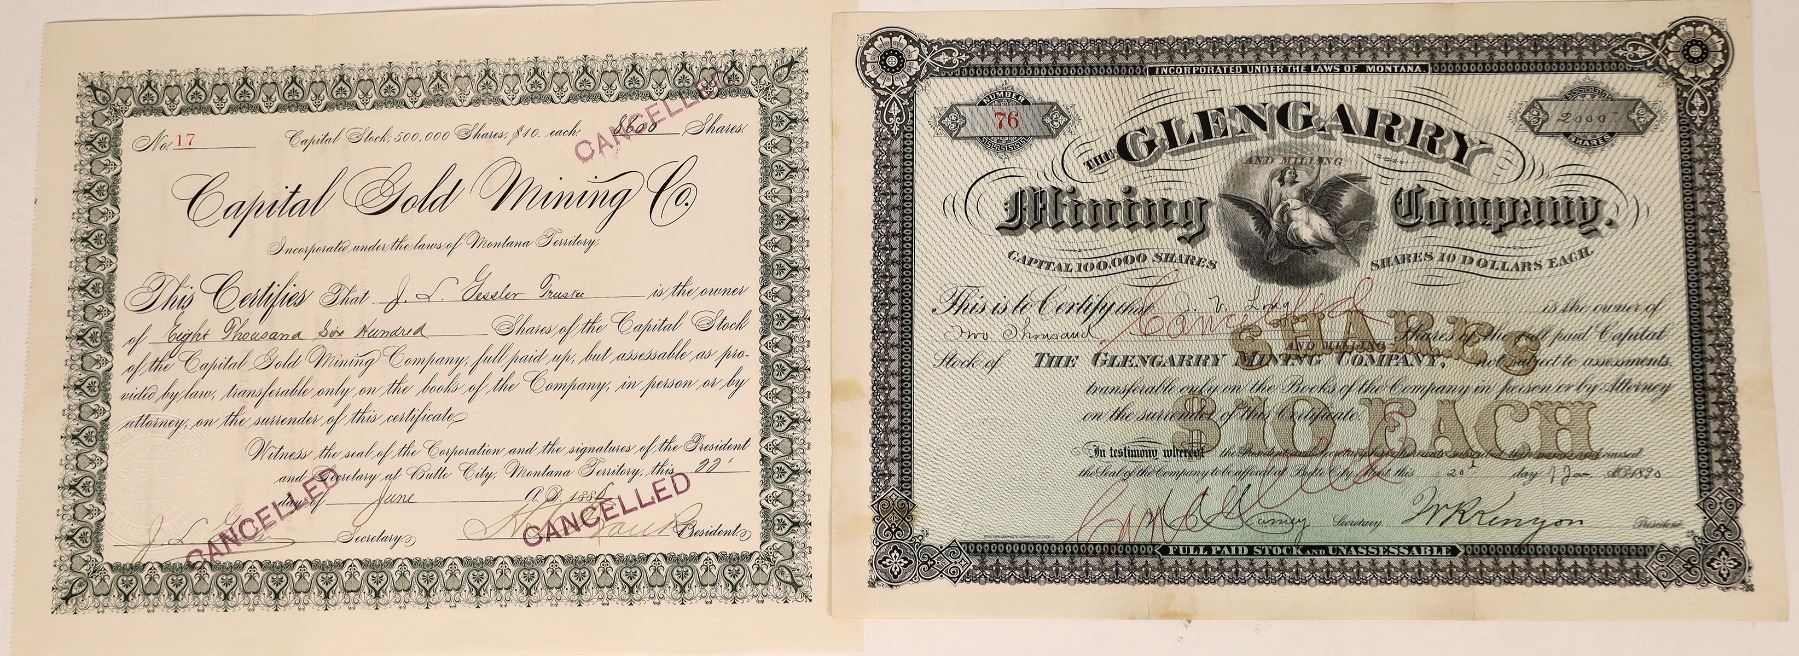 No. 17 Capital Stock, 500,000 Shares, $10. each. 8600 Shares.
CANCELLED
Capital Gold Mining Co.
Incorporated under the laws of Montana Territory.
This Certifies That J. L. Tessler Trustee is the owner
of Eight Thousand Six Hundred Shares of the Capital Stock
of the Capital Gold Mining Company, full paid up, but assessable as pro-
vided by law, transferable only on the books of the Company, in person or by
attorney, on the surrender of this certificate.
Witness the seal of the Corporation and the signatures of the President
and Secretary at Butte City, Montana Territory, this 22
day of June A.D. 188
CANCELLED
CANCELLED
J. L. Secretary. President.
INCORPORATED UNDER THE LAWS OF MONTANA.
NUMBER
76
2000
SHARES
THE GLENGARRY
AND MILLING
Mining Company.
CAPITAL 100,000 SHARES SHARES 10 DOLLARS EACH.
This is to Certify that is the owner of
Two Thousand Shares of the full paid Capital
Cancelled
SHARES
AND MILLING
Stock of THE GLENGARRY MINING COMPANY, not subject to assessments,
transferable only on the Books of the Company in person or by Attorney
on the surrender of this Certificate.
$10 EACH
In testimony whereof the
the Seal of the Company to be affixed at Butte City, this 20th day of Jan 1890
Cancelled
Secretary W R Kenyon President
FULL PAID STOCK AND UNASSESSABLE